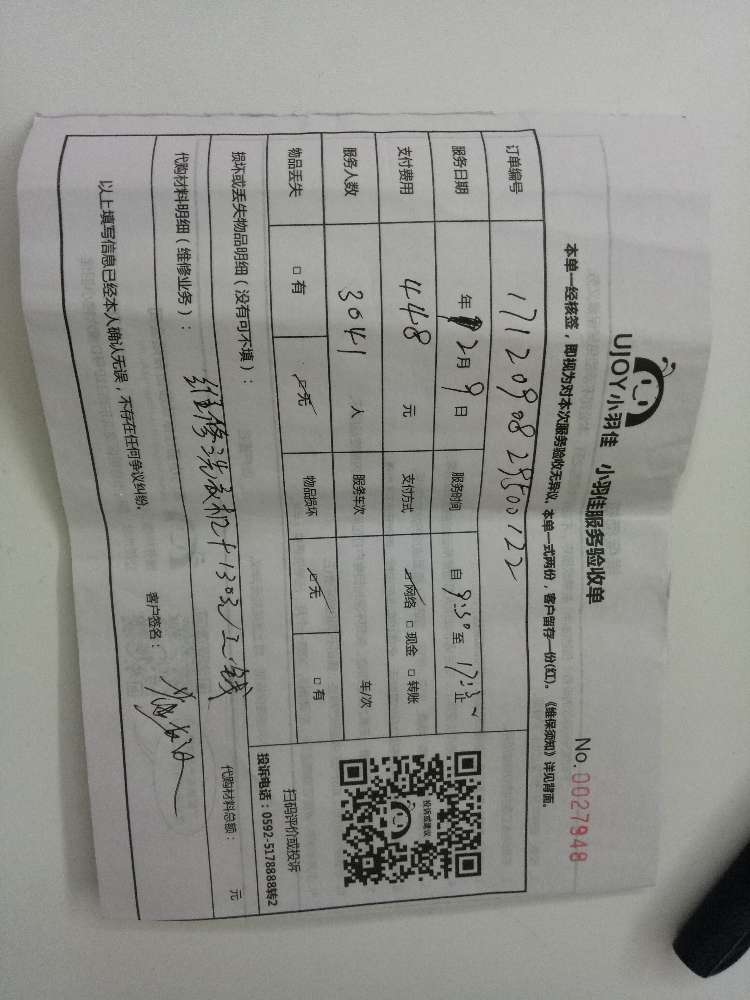 UJOY小羽佳 小羽佳服务验收单
No. 0027948
本单一经核签，即视为对本次服务验收无异议，本单一式两份，客户留存一份(红)。《维保须知》详见背面。
订单编号
服务日期 年 12月9日 服务时间 自 9:30 至 17:30 止
支付费用 448 元 支付方式 ☑网络 □现金 □转账
服务人数 3041 人 服务车次 车/次
物品丢失 □有 ☑无 物品损坏 ☑无 □有
损坏或丢失物品明细（没有可不填）：
代购材料明细（维修业务）： 维修洗衣机+130元/工钱
代购材料总额： 元
以上填写信息已经本人确认无误，不存在任何争议纠纷。
客户签名：
投诉或建议
扫码评价或投诉
投诉电话：0592-5178888转2